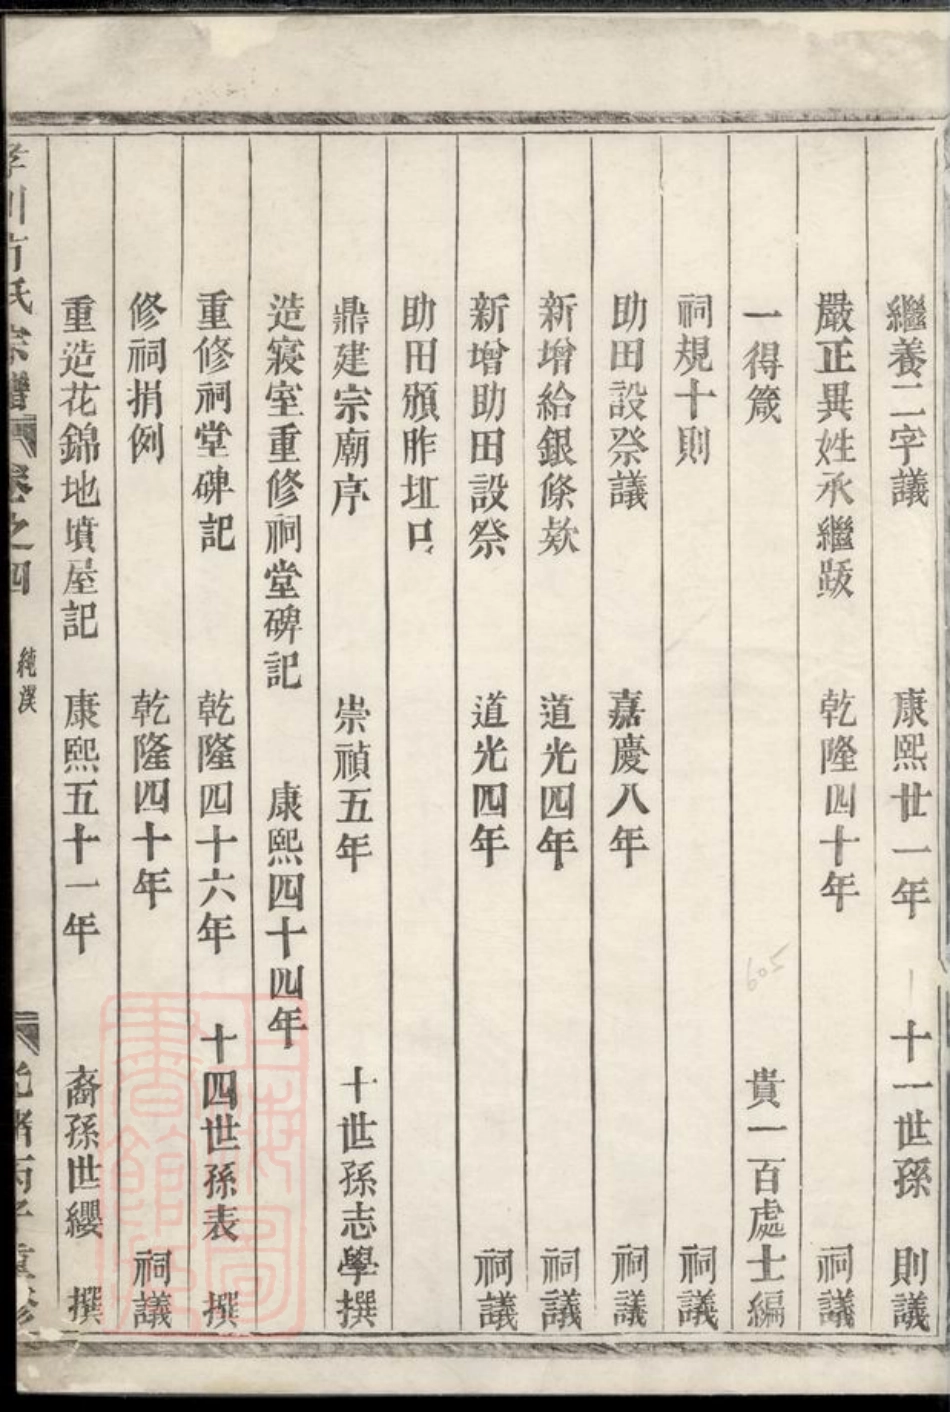 繼養二字議 康熙廿一年 十一世孫 則議
嚴正異姓承繼跋 乾隆四十年 祠議
一得箴 貴一百處士編
祠規十則 祠議
助田設祭議 嘉慶八年 祠議
新增給銀條欵 道光四年 祠議
新增助田設祭 道光四年 祠議
助田頒胙坵口
鼎建宗廟序 崇禎五年 十世孫志學撰
造寢室重修祠堂碑記 康熙四十四年
重修祠堂碑記 乾隆四十六年 十四世孫表 撰
修祠捐例 乾隆四十年 祠議
重造花錦地墳屋記 康熙五十一年 裔孫世纓 撰
川方氏宗譜 卷之四 純漠 光緒丙子重修
605